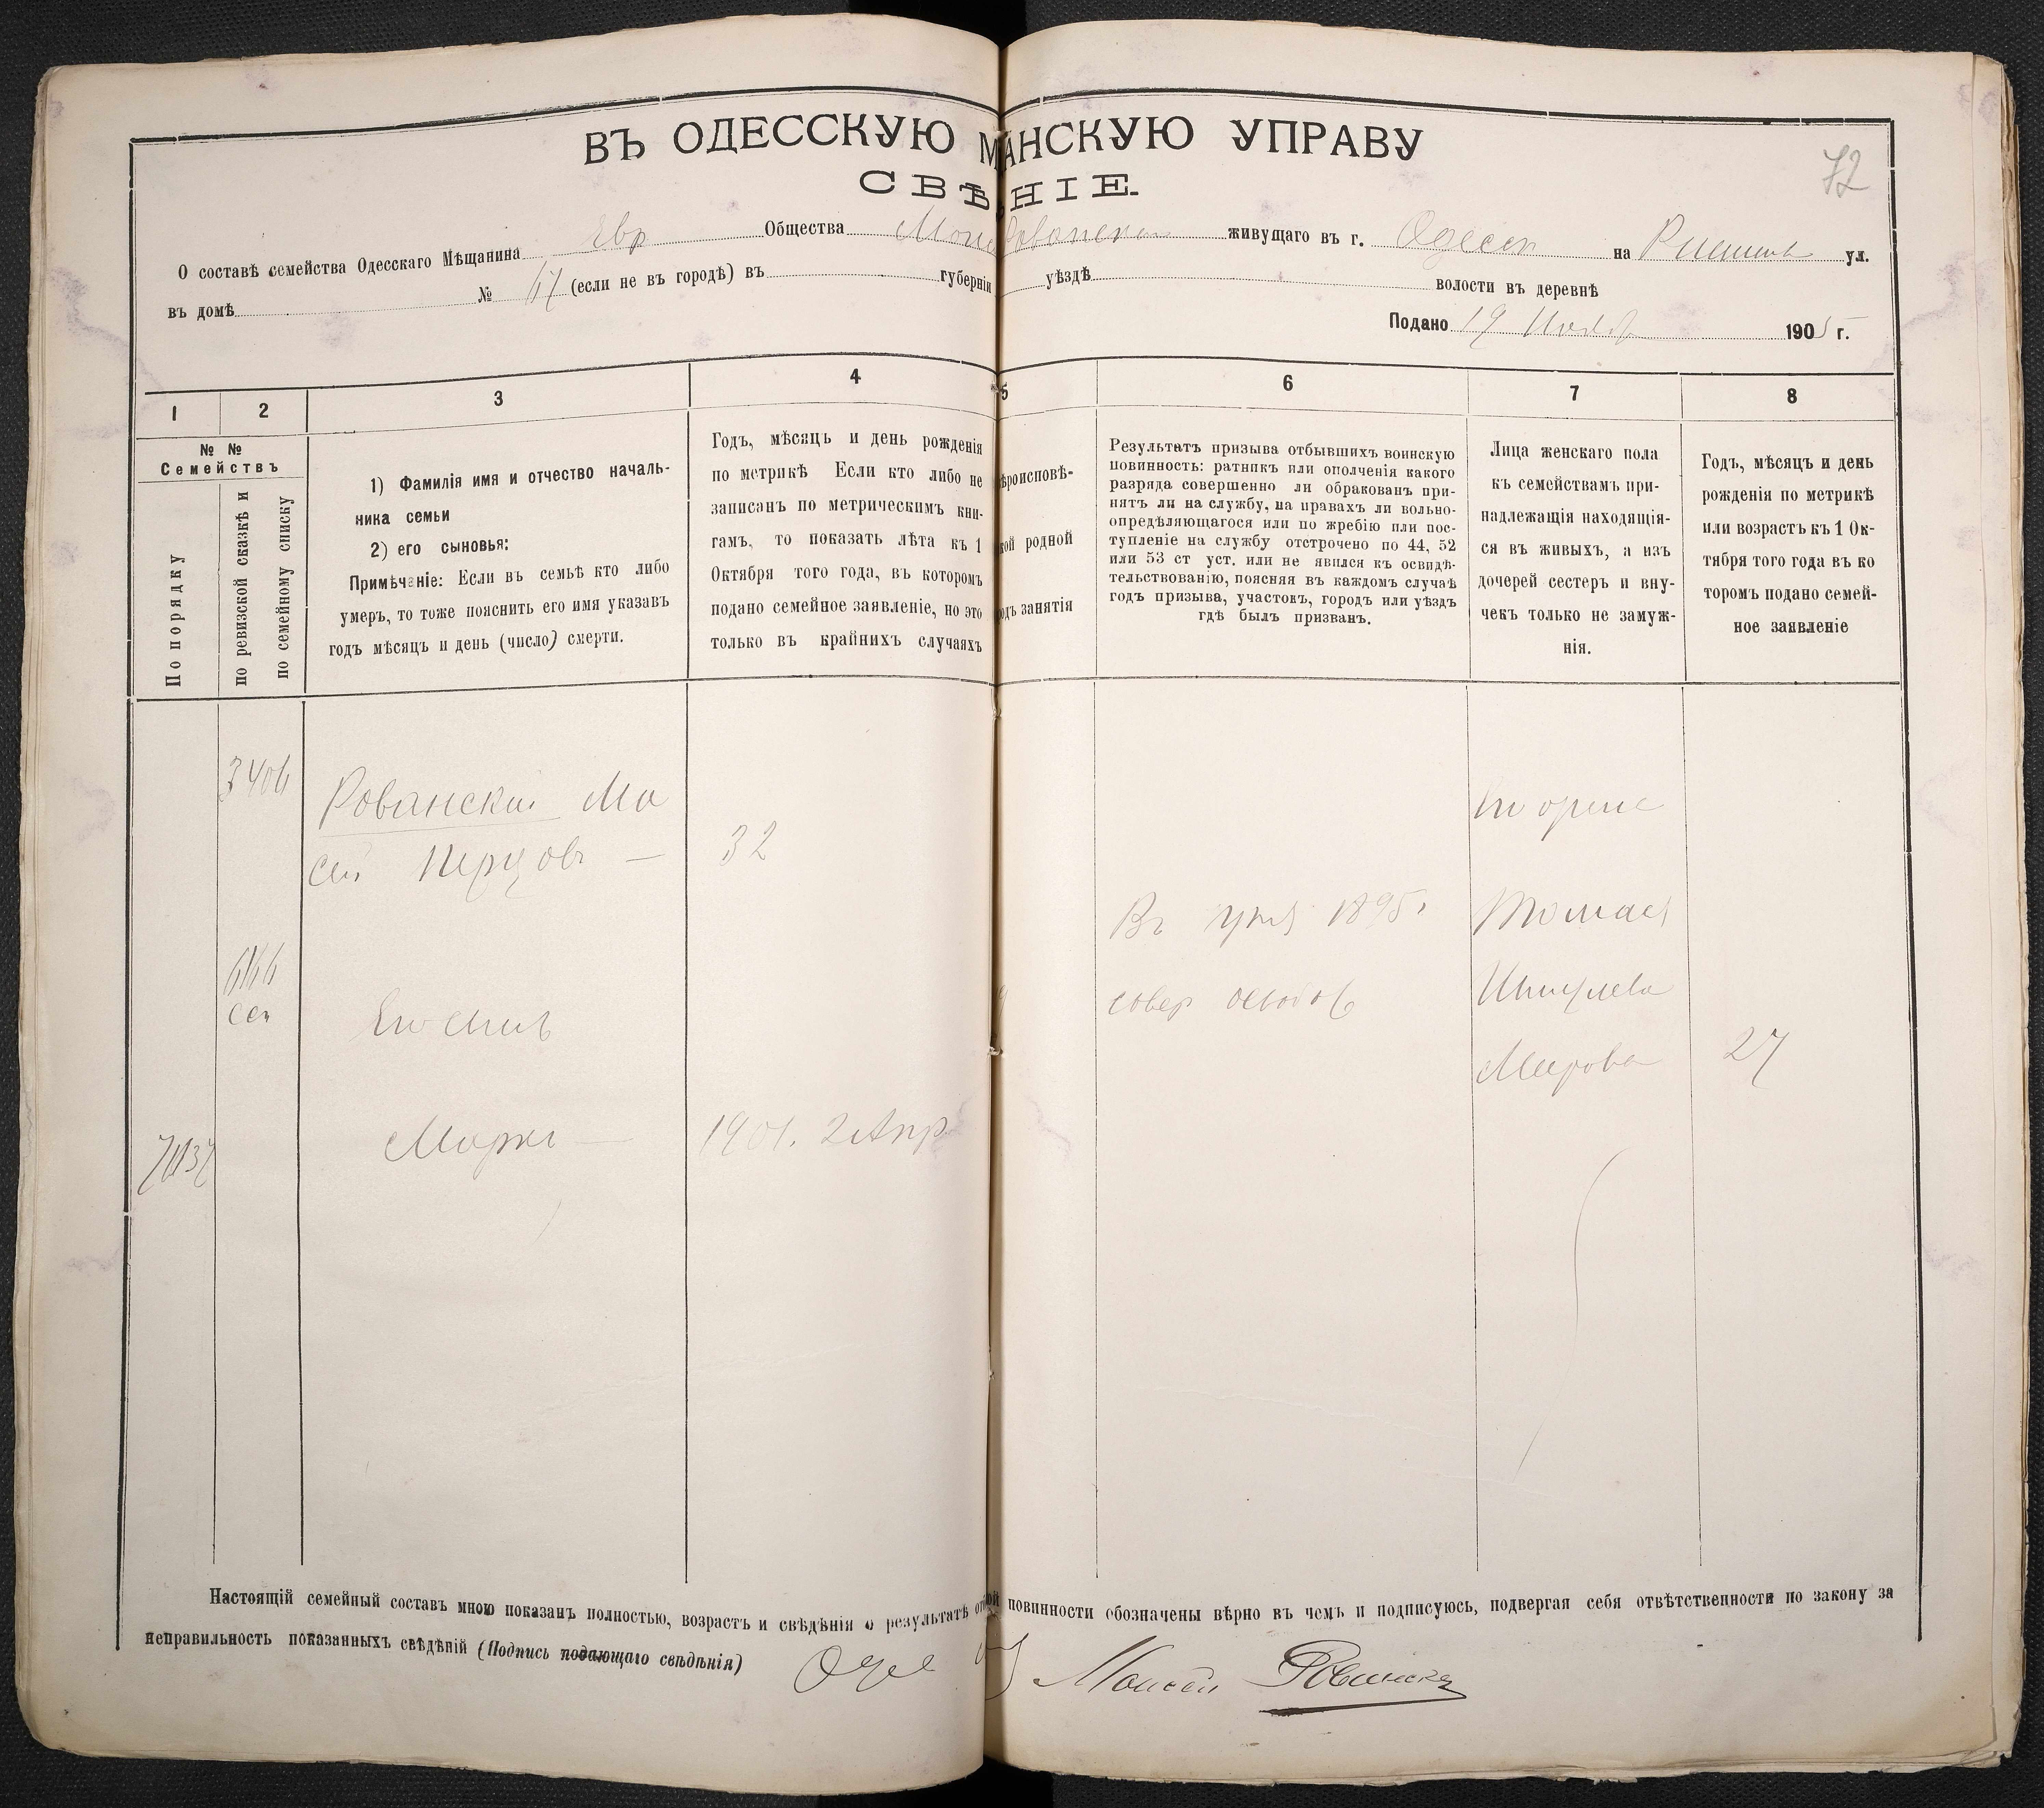 ВЪ ОДЕССКУЮ М АНСКУЮ УПРАВУ
СВѢ НІЕ.
72
О составѣ семейства Одесскаго Мѣщанина Евр Общества Рованскаго живущаго въ г. Одессе на Ришил ул.
въ домѣ № (если не въ городѣ) въ губерніи уѣздѣ волости въ деревнѣ
Подано 19 1905 г.
1
2
3
4
5
6
7
8
№ №
Семействъ
По порядку
по ревизской сказкѣ и
по семейному списку
1) Фамилія имя и отчество началь-
ника семьи
2) его сыновья:
Примѣчаніе: Если въ семьѣ кто либо
умеръ, то тоже пояснить его имя указавъ
годъ мѣсяцъ и день (число) смерти.
Годъ, мѣсяцъ и день рожденія
по метрикѣ Если кто либо не
записанъ по метрическимъ кни-
гамъ, то показать лѣта къ 1
Октября того года, въ которомъ
подано семейное заявленіе, но это
только въ крайнихъ случаяхъ
ѣроисповѣ-
кой родной
одъ занятія
Результатъ призыва отбывшихъ воинскую
повинность: ратникъ или ополченія какого
разряда совершенно ли обракованъ при-
нятъ ли на службу, на правахъ ли вольно-
опредѣляющагося или по жребію или пос-
тупленіе на службу отстрочено по 44, 52
или 53 ст уст. или не явился къ освидѣ-
тельствованію, поясняя въ каждомъ случаѣ
годъ призыва, участокъ, городъ или уѣздъ
гдѣ былъ призванъ.
Лица женскаго пола
къ семействамъ при-
надлежащія находящія-
ся въ живыхъ, а изъ
дочерей сестеръ и вну-
чекъ только не замуж-
нія.
Годъ, мѣсяцъ и день
рожденія по метрикѣ
или возрастъ къ 1 Ок-
тября того года въ ко
торомъ подано семей-
ное заявленіе
Рованскій Мо
сей Перцовъ — 32
Въ 1895г
совер освоб
Меерова 27
Марко — 1901. 2 Апр
Настоящій семейный составъ мною показанъ полностью, возрастъ и свѣдѣнія о результатѣ от ой повинности обозначены вѣрно въ чемъ и подписуюсь, подвергая себя отвѣтственности по закону за
неправильность показанныхъ свѣдѣній (Подпись подающаго свѣдѣнія)
Моисей Рованскій